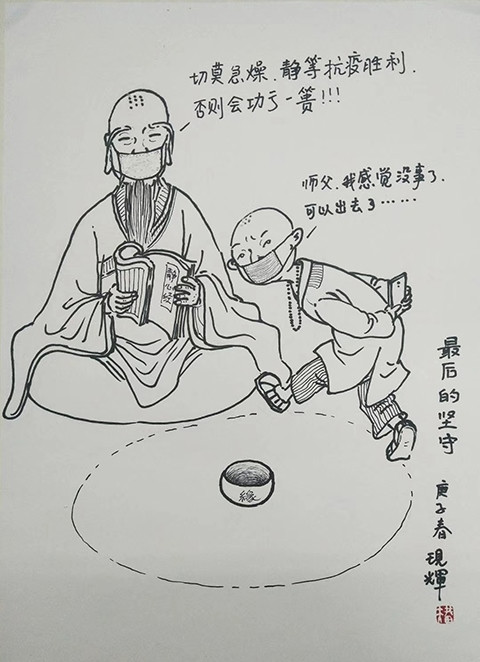 切莫急燥、静等抗疫胜利.
否则会功亏一篑!!!
师父、我感觉没事了、
可以出去了……
静心经
缘
最后的坚守
庚子春 現輝